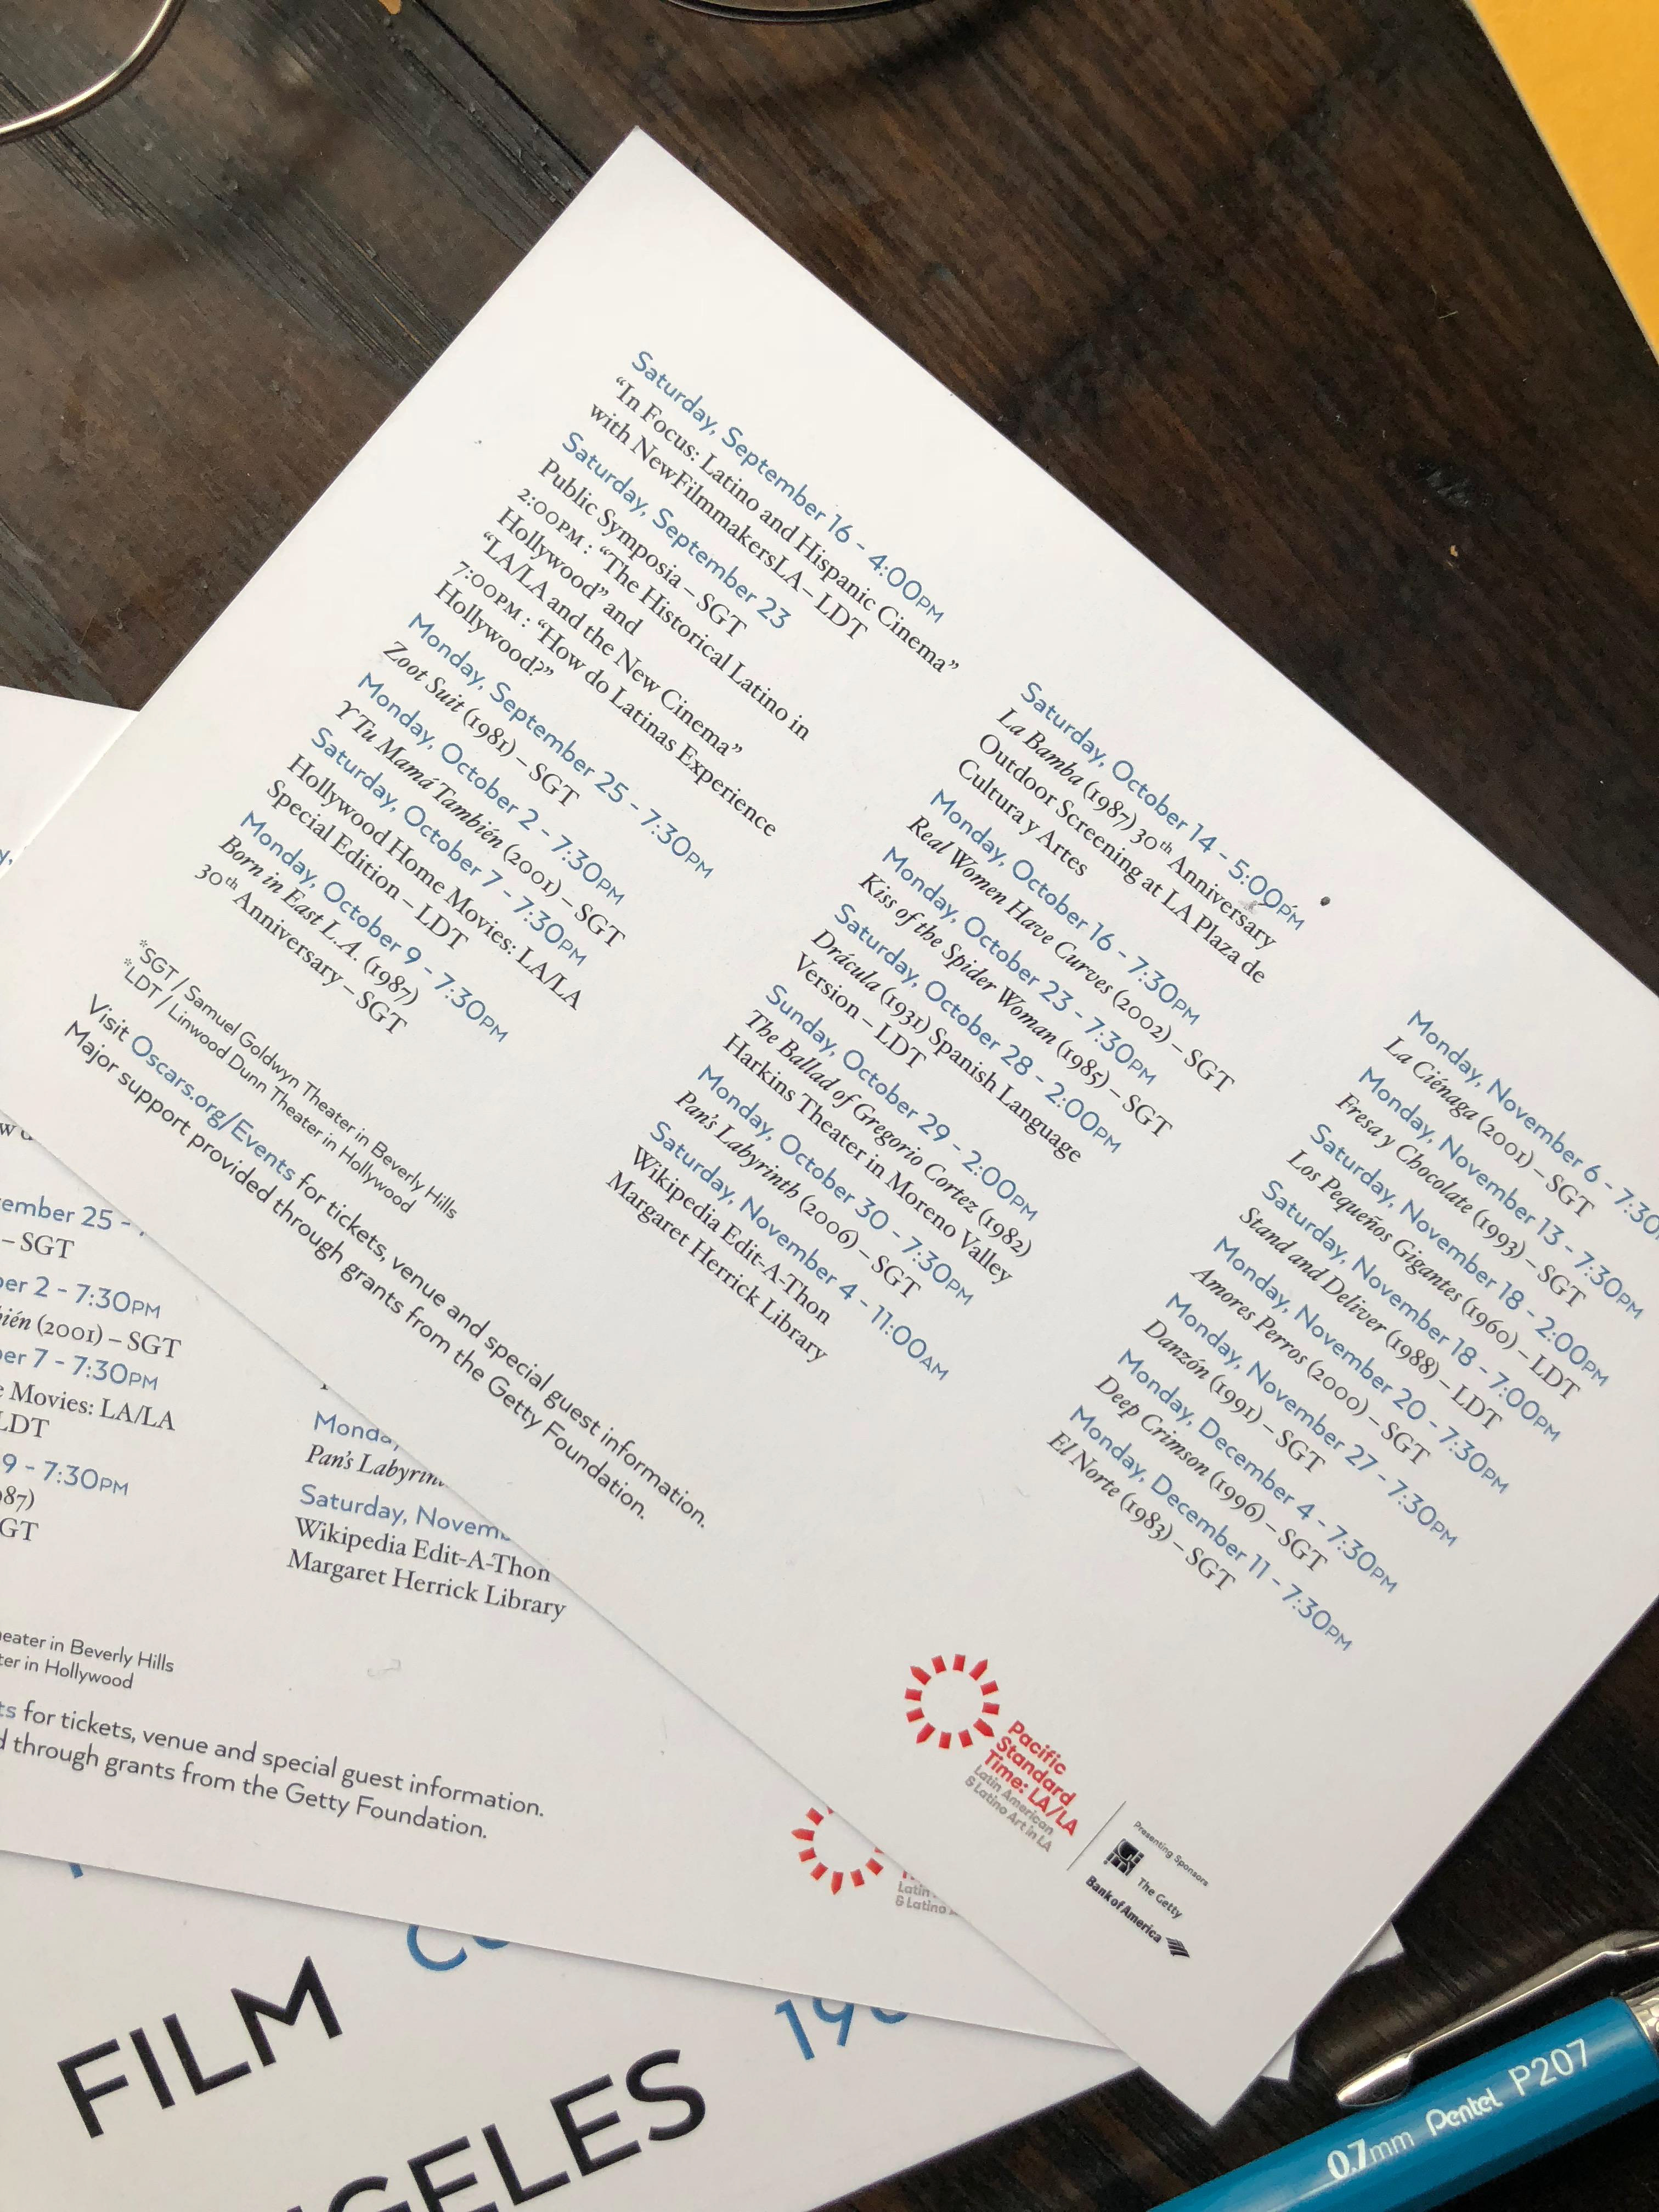 Saturday, September 16 - 4:00PM
“In Focus: Latino and Hispanic Cinema”
with NewFilmmakersLA – LDT
Saturday, September 23
Public Symposia – SGT
2:00PM : “The Historical Latino in
Hollywood” and
“LA/LA and the New Cinema”
7:00PM : “How do Latinas Experience
Hollywood?”
Monday, September 25 - 7:30PM
Zoot Suit (1981) – SGT
Monday, October 2 - 7:30PM
Y Tu Mamá También (2001) – SGT
Saturday, October 7 - 7:30PM
Hollywood Home Movies: LA/LA
Special Edition – LDT
Monday, October 9 - 7:30PM
Born in East L.A. (1987)
30th Anniversary – SGT
*SGT / Samuel Goldwyn Theater in Beverly Hills
*LDT / Linwood Dunn Theater in Hollywood
Visit Oscars.org/Events for tickets, venue and special guest information.
Major support provided through grants from the Getty Foundation.
Saturday, October 14 - 5:00PM
La Bamba (1987) 30th Anniversary
Outdoor Screening at LA Plaza de
Cultura y Artes
Monday, October 16 - 7:30PM
Real Women Have Curves (2002) – SGT
Monday, October 23 - 7:30PM
Kiss of the Spider Woman (1985) – SGT
Saturday, October 28 - 2:00PM
Drácula (1931) Spanish Language
Version – LDT
Sunday, October 29 - 2:00PM
The Ballad of Gregorio Cortez (1982)
Harkins Theater in Moreno Valley
Monday, October 30 - 7:30PM
Pan’s Labyrinth (2006) – SGT
Saturday, November 4 - 11:00AM
Wikipedia Edit-A-Thon
Margaret Herrick Library
Monday, November 6 - 7:30
La Ciénaga (2001) – SGT
Monday, November 13 - 7:30PM
Fresa y Chocolate (1993) – SGT
Saturday, November 18 - 2:00PM
Los Pequeños Gigantes (1960) – LDT
Saturday, November 18 - 7:00PM
Stand and Deliver (1988) – LDT
Monday, November 20 - 7:30PM
Amores Perros (2000) – SGT
Monday, November 27 - 7:30PM
Danzón (1991) – SGT
Monday, December 4 - 7:30PM
Deep Crimson (1996) – SGT
Monday, December 11 - 7:30PM
El Norte (1983) – SGT
Pacific
Standard
Time: LA/LA
Latin American
& Latino Art in LA
Presenting Sponsors
The Getty
Bank of America
ember 25 -
– SGT
er 2 - 7:30PM
ién (2001) – SGT
er 7 - 7:30PM
Movies: LA/LA
LDT
9 - 7:30PM
87)
GT
Monda
Pan’s Labyrin
Saturday, Novem
Wikipedia Edit-A-Thon
Margaret Herrick Library
eater in Beverly Hills
ter in Hollywood
ts for tickets, venue and special guest information.
d through grants from the Getty Foundation.
Latin
& Latino
FILM
GELES
19
0.7mm Pentel P207